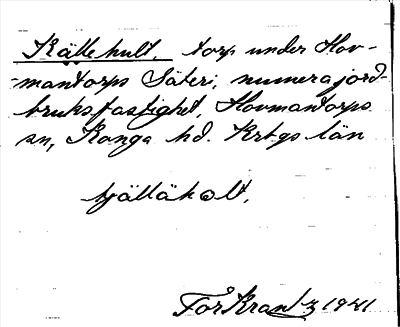 Källehult, torp under Hov-
mantorps Säteri, numera jord-
bruksfastighet, Hovmantorps
sn, Konga hd. Krbgs län
tjälläholt,
Tor Krantz 1941